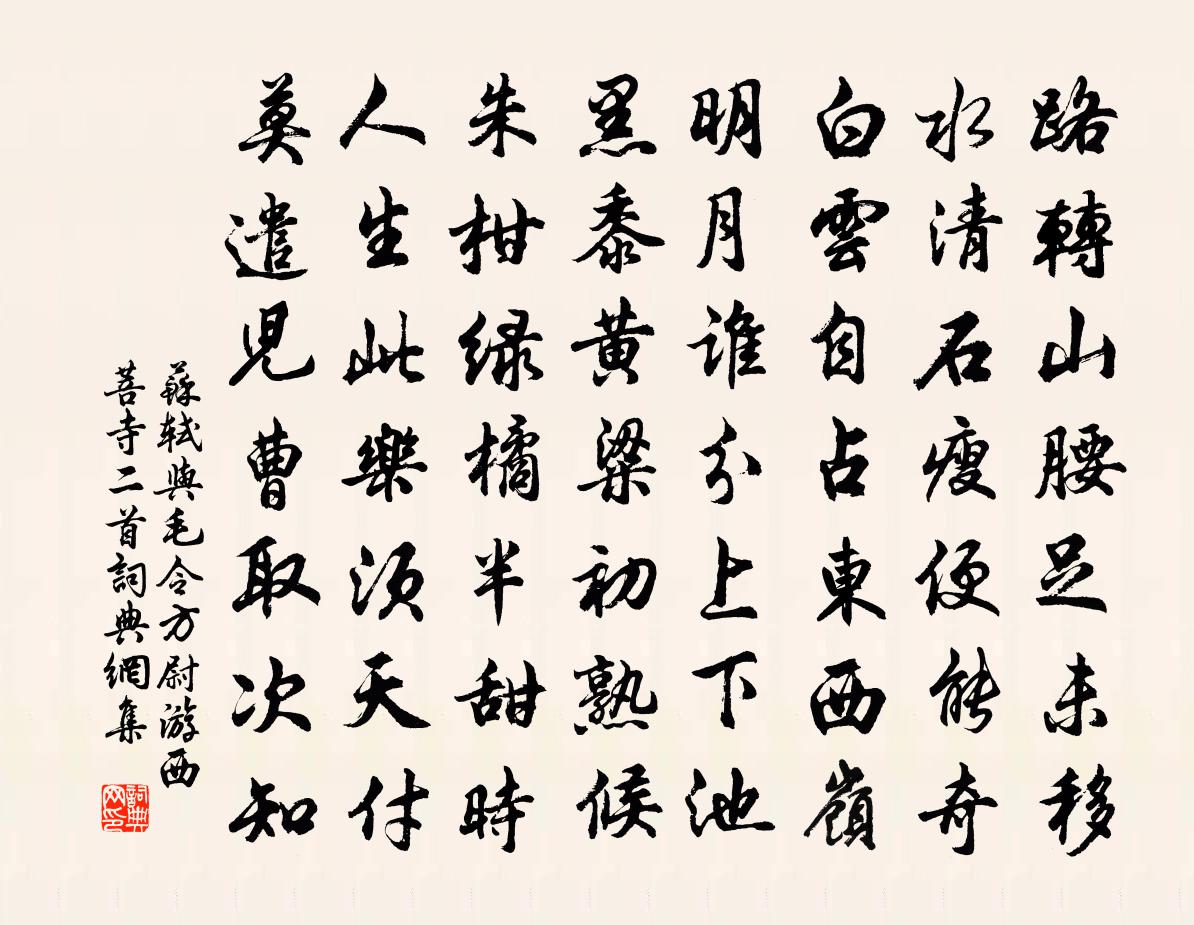 路轉山腰足未移
水清石瘦便能奇
白雲自占東西嶺
明月誰分上下池
黑黍黃粱初熟候
朱柑綠橘半甜時
人生此樂須天付
莫遣兒曹取次知
蘇軾與毛令方尉游西
菩寺二首詞典網集
詞典
网印